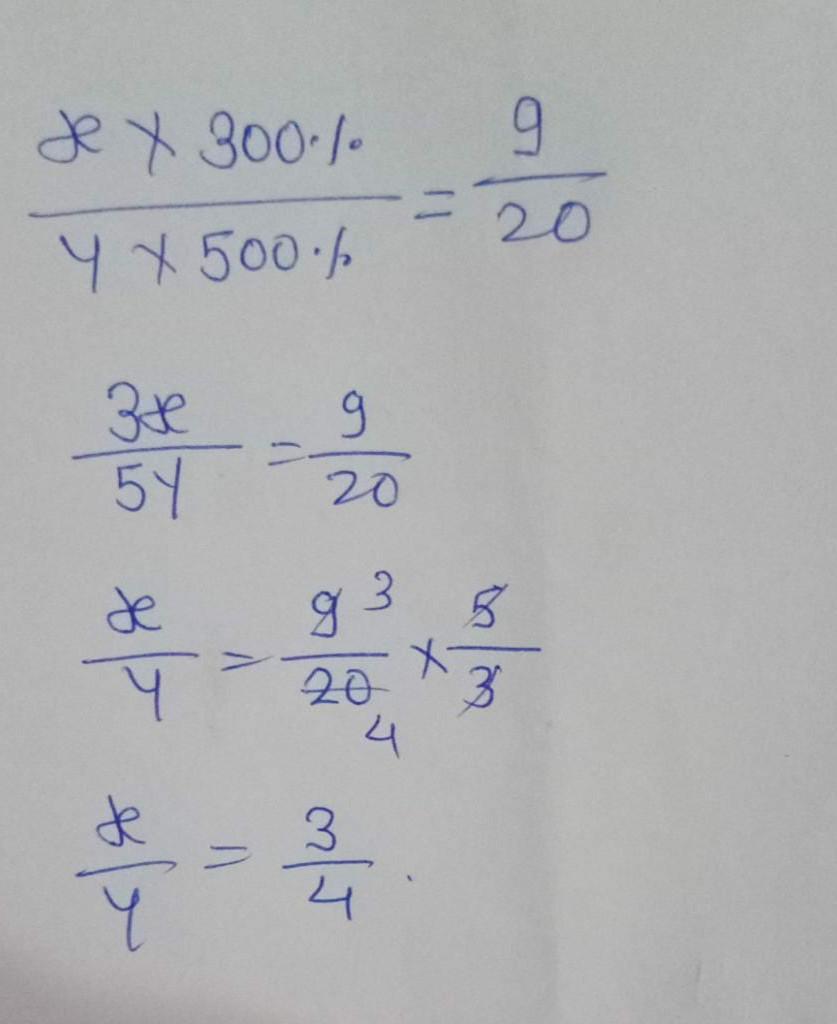 x × 300% / y × 500% = 9/20
3x/5y = 9/20
x/y = 9 3/20 4 × 5/3
x/y = 3/4.